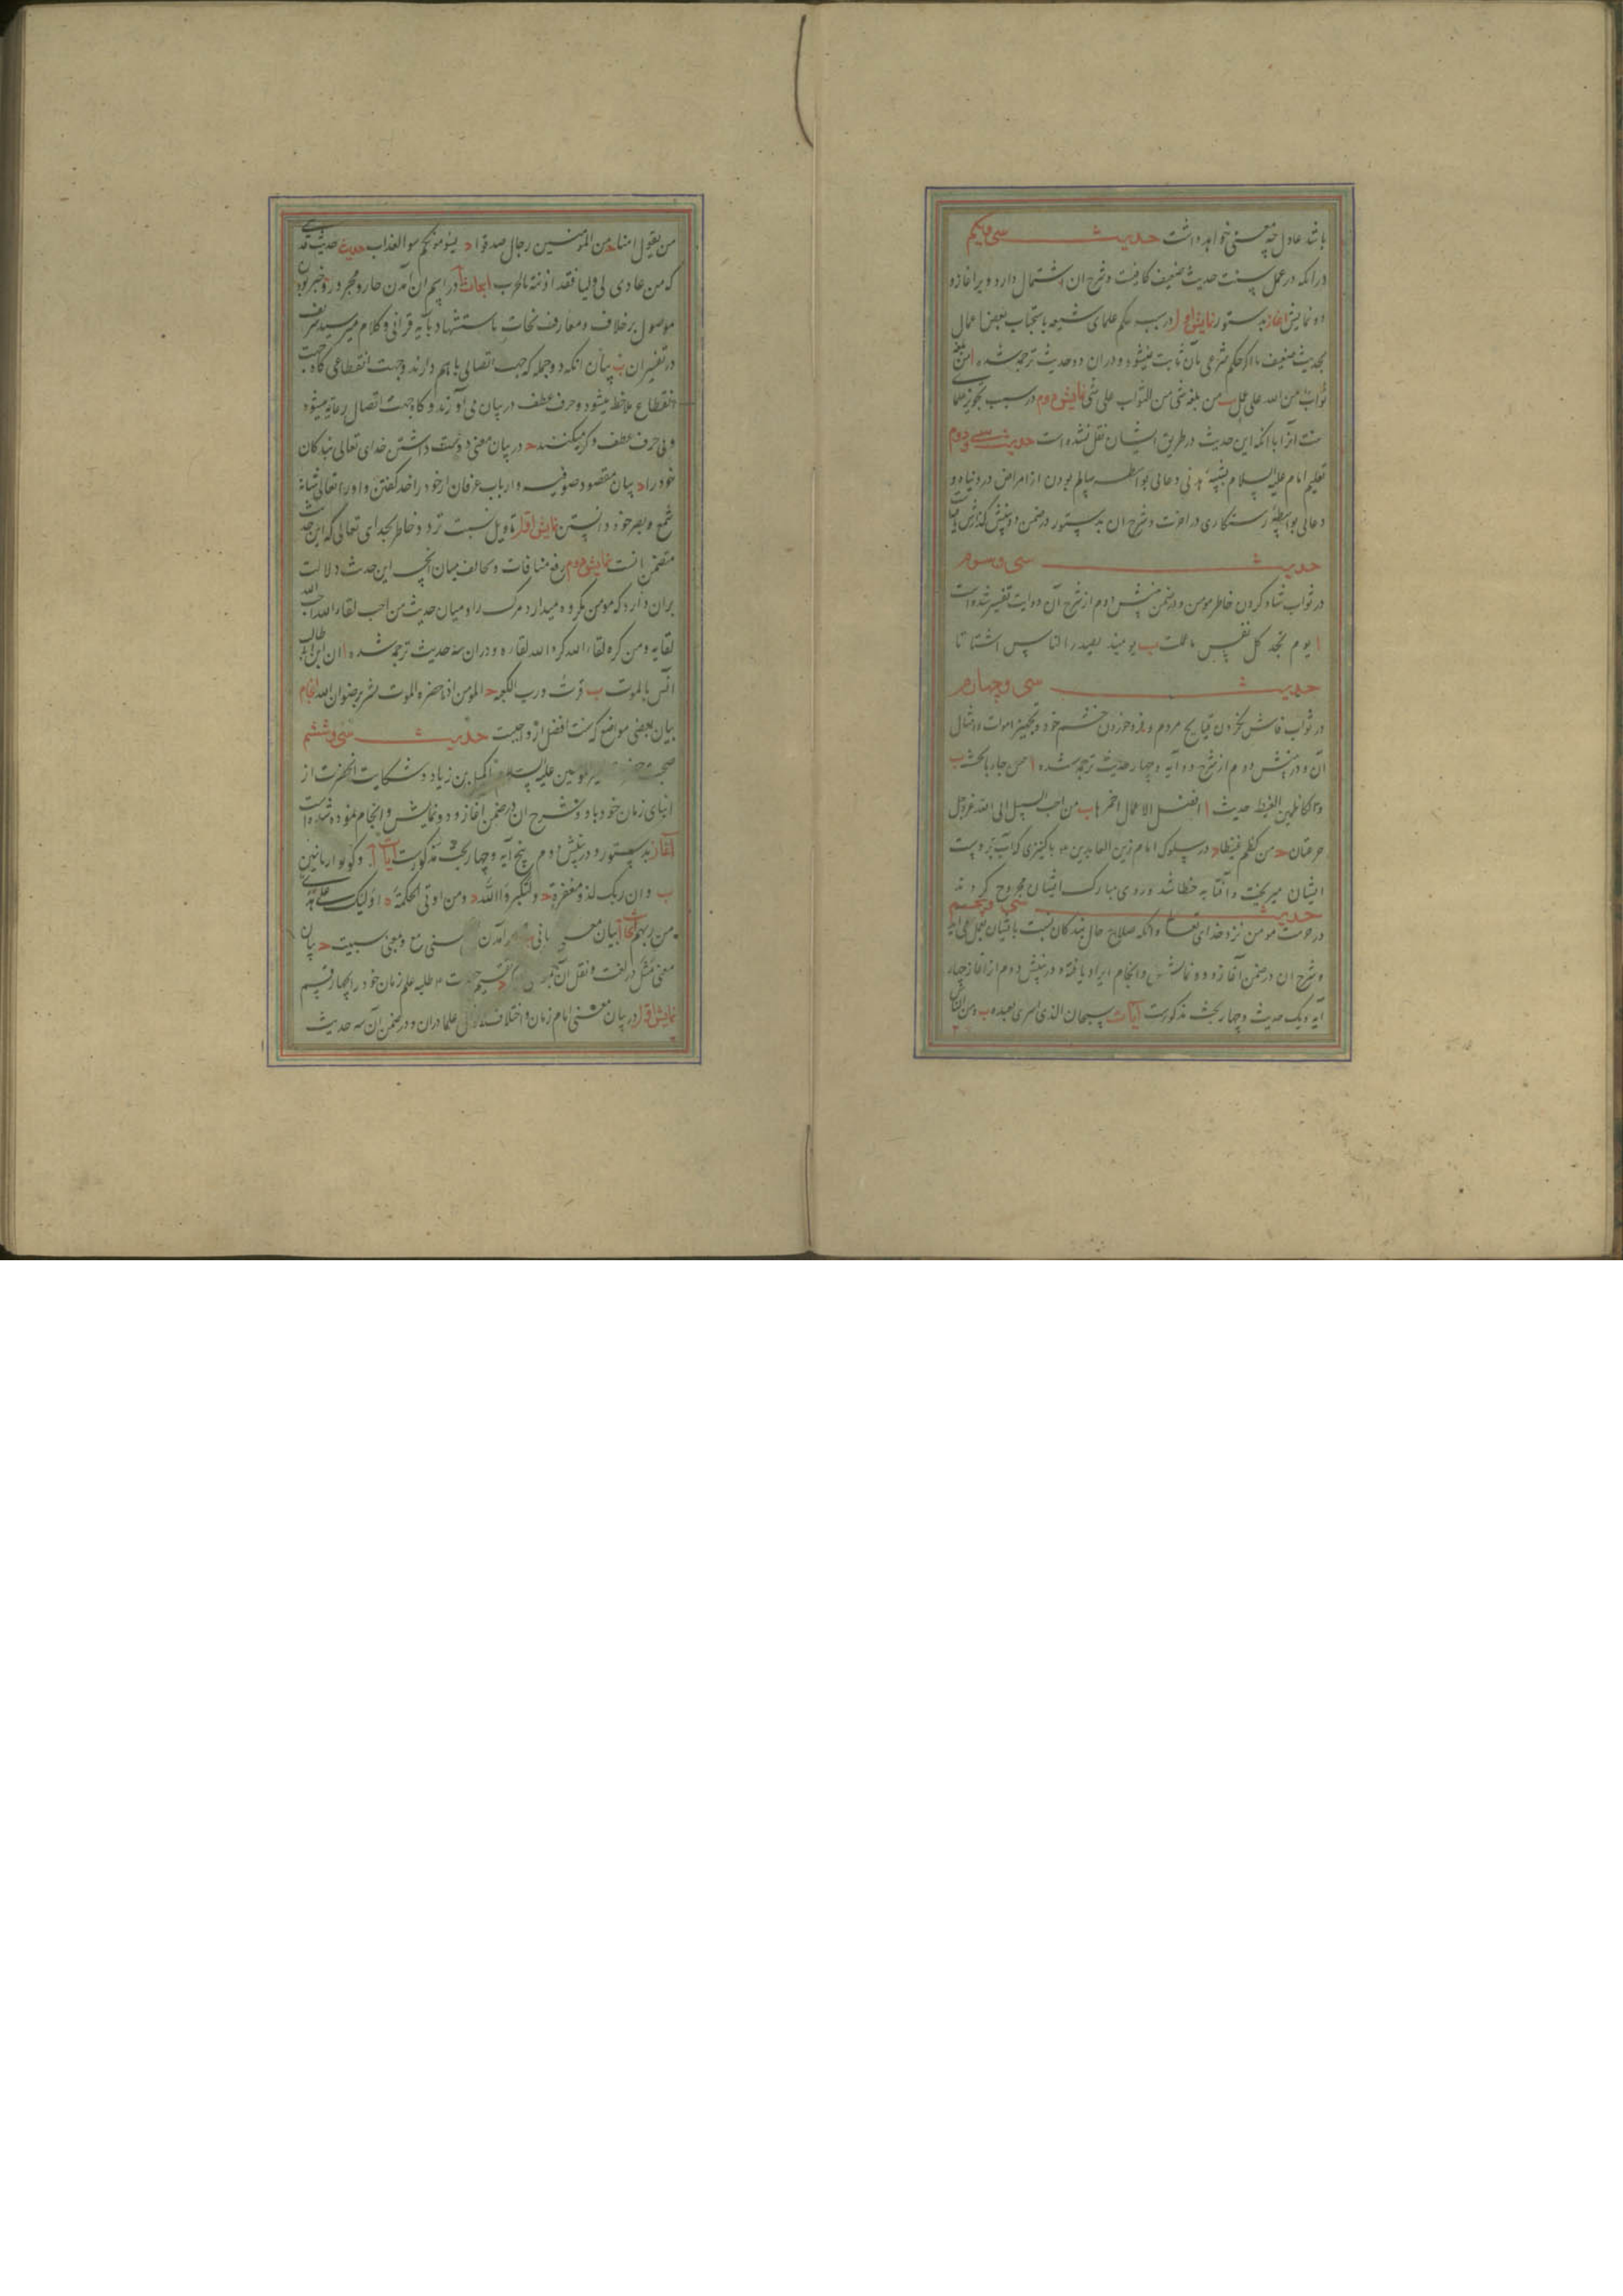 باشد عادل چه معنی خواهد داشت حدیث سی و یکم
در انکه در عمل سنت حدیث ضعیف کافیست و شرح ان اشتمال دارد و بر اغاز و
دو نمایش اغاز بدستور نمایش اول در سبب حکم علمای شیعه باستحباب بعض اعمال
بحدیث ضعیف با انکه حکم شرعی بآن ثابت نمیشود و دران دو حدیث ترجمه شده ا من بلغه
ثواب من الله علی عمل ب من بلغه شی من الثواب علی شی نمایش دوم در سبب تجویز علما
سنت انرا با انکه این حدیث در طریق ایشان نقل نشده است حدیث سی و دوم
تعلیم امام علیه السلام بشیبه هذلی دعائی بواسطه سالم بودن از امراض در دنیا و
دعائی بواسطه رستکاری در اخرت و شرح ان بدستور در ضمن دو بینش کذارش یافت
حدیث سی و سوم
در ثواب شاد کردن خاطر مومن و در ضمن بینش دوم از شرح آن دو ایت تفسیر شده است
ا یوم تجد کل نفس ما عملت ب یومئذ یصدر الناس اشتاتا
حدیث سی و چهارم
در ثواب فاش نکردن قبایح مردم و فرو خوردن خشم خود و تجهیز اموات و امثال
آن و در بینش دوم از شرح دو آیه و چهار حدیث ترجمه شده ا من جاء بالحسنة ب
والکاظمین الغیظ حدیث ا افضل الاعمال احمزها ب من احب السبیل الی الله عز وجل
جرعتان ج من کظم غیظا د در سلوک امام زین العابدین ع با کنیزی که آب بر دست
ایشان میریخت و آفتابه خطا شد و روی مبارک ایشان مجروح کردند
حدیث سی و پنجم
در حرمت مومن نزد خدای تعالی و انکه صلاح حال بندکان نسبت باقتیان بعمل می اید
و شرح ان در ضمن آغاز و دو نمایش و انجام ایراد یافته و در بینش دوم از اغاز چهار
آیه و یک حدیث و چهار بحث مذکورست آیات ا سبحان الذی اسری بعبده ب و من الناس
من یقول امنا ج من المؤمنین رجال صدقوا د یسومونکم سوء العذاب حدیث حدیث قدسی
که من عادی لی ولیا فقد اذنته بالحرب ابحاث ا در اسم ان آمدن جار و مجرور و خبر بودن
موصول بر خلاف متعارف نحات باستشهاد بآیه قرانی و کلام میر سید شریف
در تفسیر ان ب بیان انکه دو جمله که جهت اتصالی با هم دارند و جهت انقطاعی کاه جهت
انقطاع ملاحظه میشود و حرف عطف در میان می آورند و کاه جهت اتصال رعایه میشود
و بی حرف عطف ذکر میکنند ج در بیان معنی دوست داشتن خدای تعالی بندکان
خود را د بیان مقصود صوفیه و ارباب عرفان از خود را خدا کفتن و او را تعالی شانه
سمع و بصر خود دانستن نمایش اول تاویل نسبت تردد خاطر بخدای تعالی که این حدیث
متضمن انست نمایش دوم رفع منافات و تخالف میان انچه این حدیث دلالت
بران دارد که مومن مکروه میدارد مرک را و میان حدیث من احب لقاء الله احب الله
لقایه و من کره لقاء الله کره الله لقاءه و دران سه حدیث ترجمه شده ا ان ابن ابی طالب
انس بالموت ب فزت و رب الکعبه ج المومن اذا حضره الموت بشر برضوان الله انجام
بیان بعضی مواضع که سنت افضل از واجبست حدیث سی و ششم
المومنین علیه السلام با کمیل بن زیاد و شکایت انحضرت از
ابنای زمان خود با و شرح ان در ضمن آغاز و دو نمایش و انجام نموده شده است
آغاز بدستور و در بینش دوم پنج آیه و چهار بحث مذکورست آیات ا و کونوا ربانیین
ب و ان ربک لذو مغفرة ج و لتکبروا الله د و من اوتی الحکمة ه اولئک علی هدی
من ربهم ابحاث ا بیان معنی ربانی آمدن علی بمعنی مع و بمعنی سببیت ج بیان
معنی مثل در لغت و نقل آن تقسیم طلبه علم زمان خود را بچهار قسم
نمایش اول در بیان معنی امام زمان و اختلاف علما دران و در ضمن آن سه حدیث